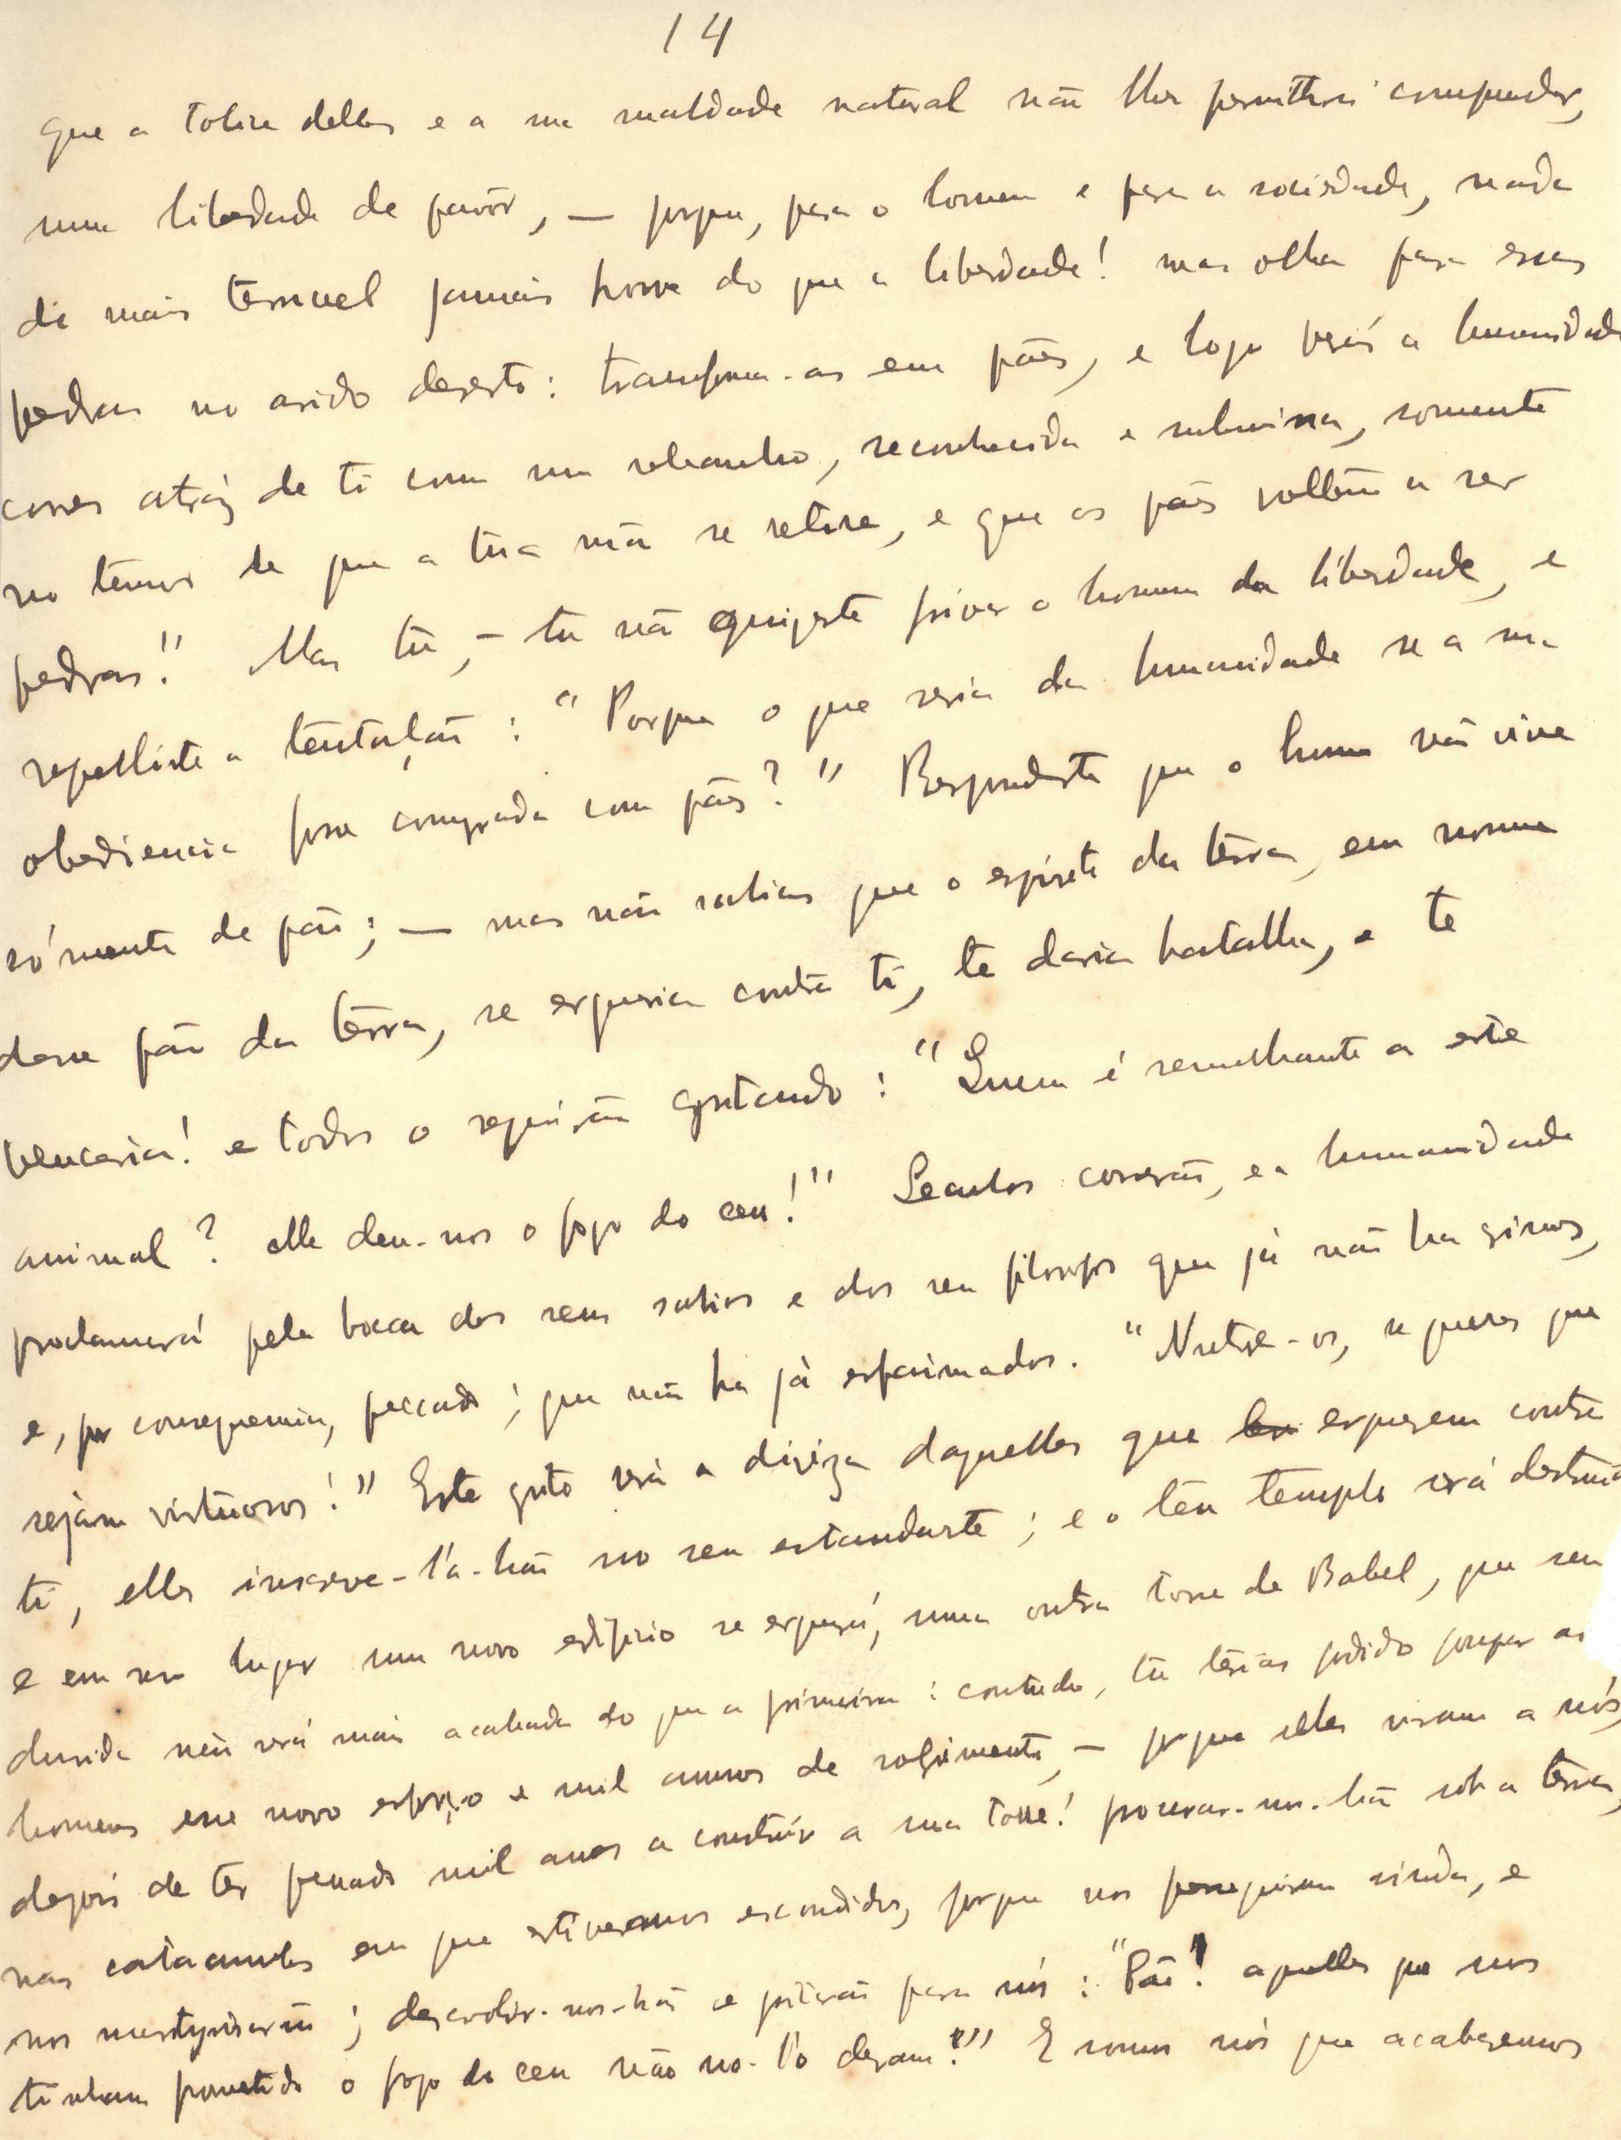 14
que a tolice delles e a sua maldade natural não lhes permittirá comprender,
uma liberdade de pavôr, — porque, para o homem e para a sociedade, nada
de mais terrivel jamais houve do que a liberdade! mas olha para essas
pedras no arido deserto: transforma-as em pães, e logo verás a humanidade
correr atráz de ti como um rebanho, reconhecida e submissa, somente
no temor de que a tua mão se retire, e que os pães voltem a ser
pedras!" Mas tu, – tu não quizeste privar o homem da liberdade, e
repelliste a tentação: "Porque o que seria da humanidade se a sua
obediencia fosse comprada com pães?" Respondeste que o homem não vive
sómente de pão; — mas não sabias que o espirito da terra, em nome
desse pão da terra, se ergueria contra ti, te daria batalha, e te
venceria! e todos o seguirão gritando: "Quem é semelhante a este
animal? elle deu-nos o fogo do ceu!" Seculos correrão, e a humanidade
proclamará pela bocca dos seus sabios e dos seu filosofos que já não ha crimes,
e, por consequencia, peccado; que não ha já esfaimados. "Nutre-os, se queres que
sejam virtuosos!" Este grito será a diviza daquelles que se erguerem contra
ti, elles inscreve-l'a-hão no seu estandarte; e o teu templo será destruido
e em seu lugar um novo edificio se erguerá, uma outra torre de Babel, que sem
duvida não será mais acabada do que a primeira: contudo, tu terias podido poupar aos
homens esse novo esforço e mil annos de soffrimento, – porque elles viram a nós,
depois de ter penado mil anos a construir a sua torre! procurar-nos-hão sob a terra,
nas catacumbas em que estiveremos escondidos, porque nos perseguiram ainda, e
nos martyrisarão; descobrir-nos-hão e gritarão para nós: "Pão! aquelles que nos
tinham promettido o fogo do ceu não no-l'o deram!" E somos nós que acabaremos